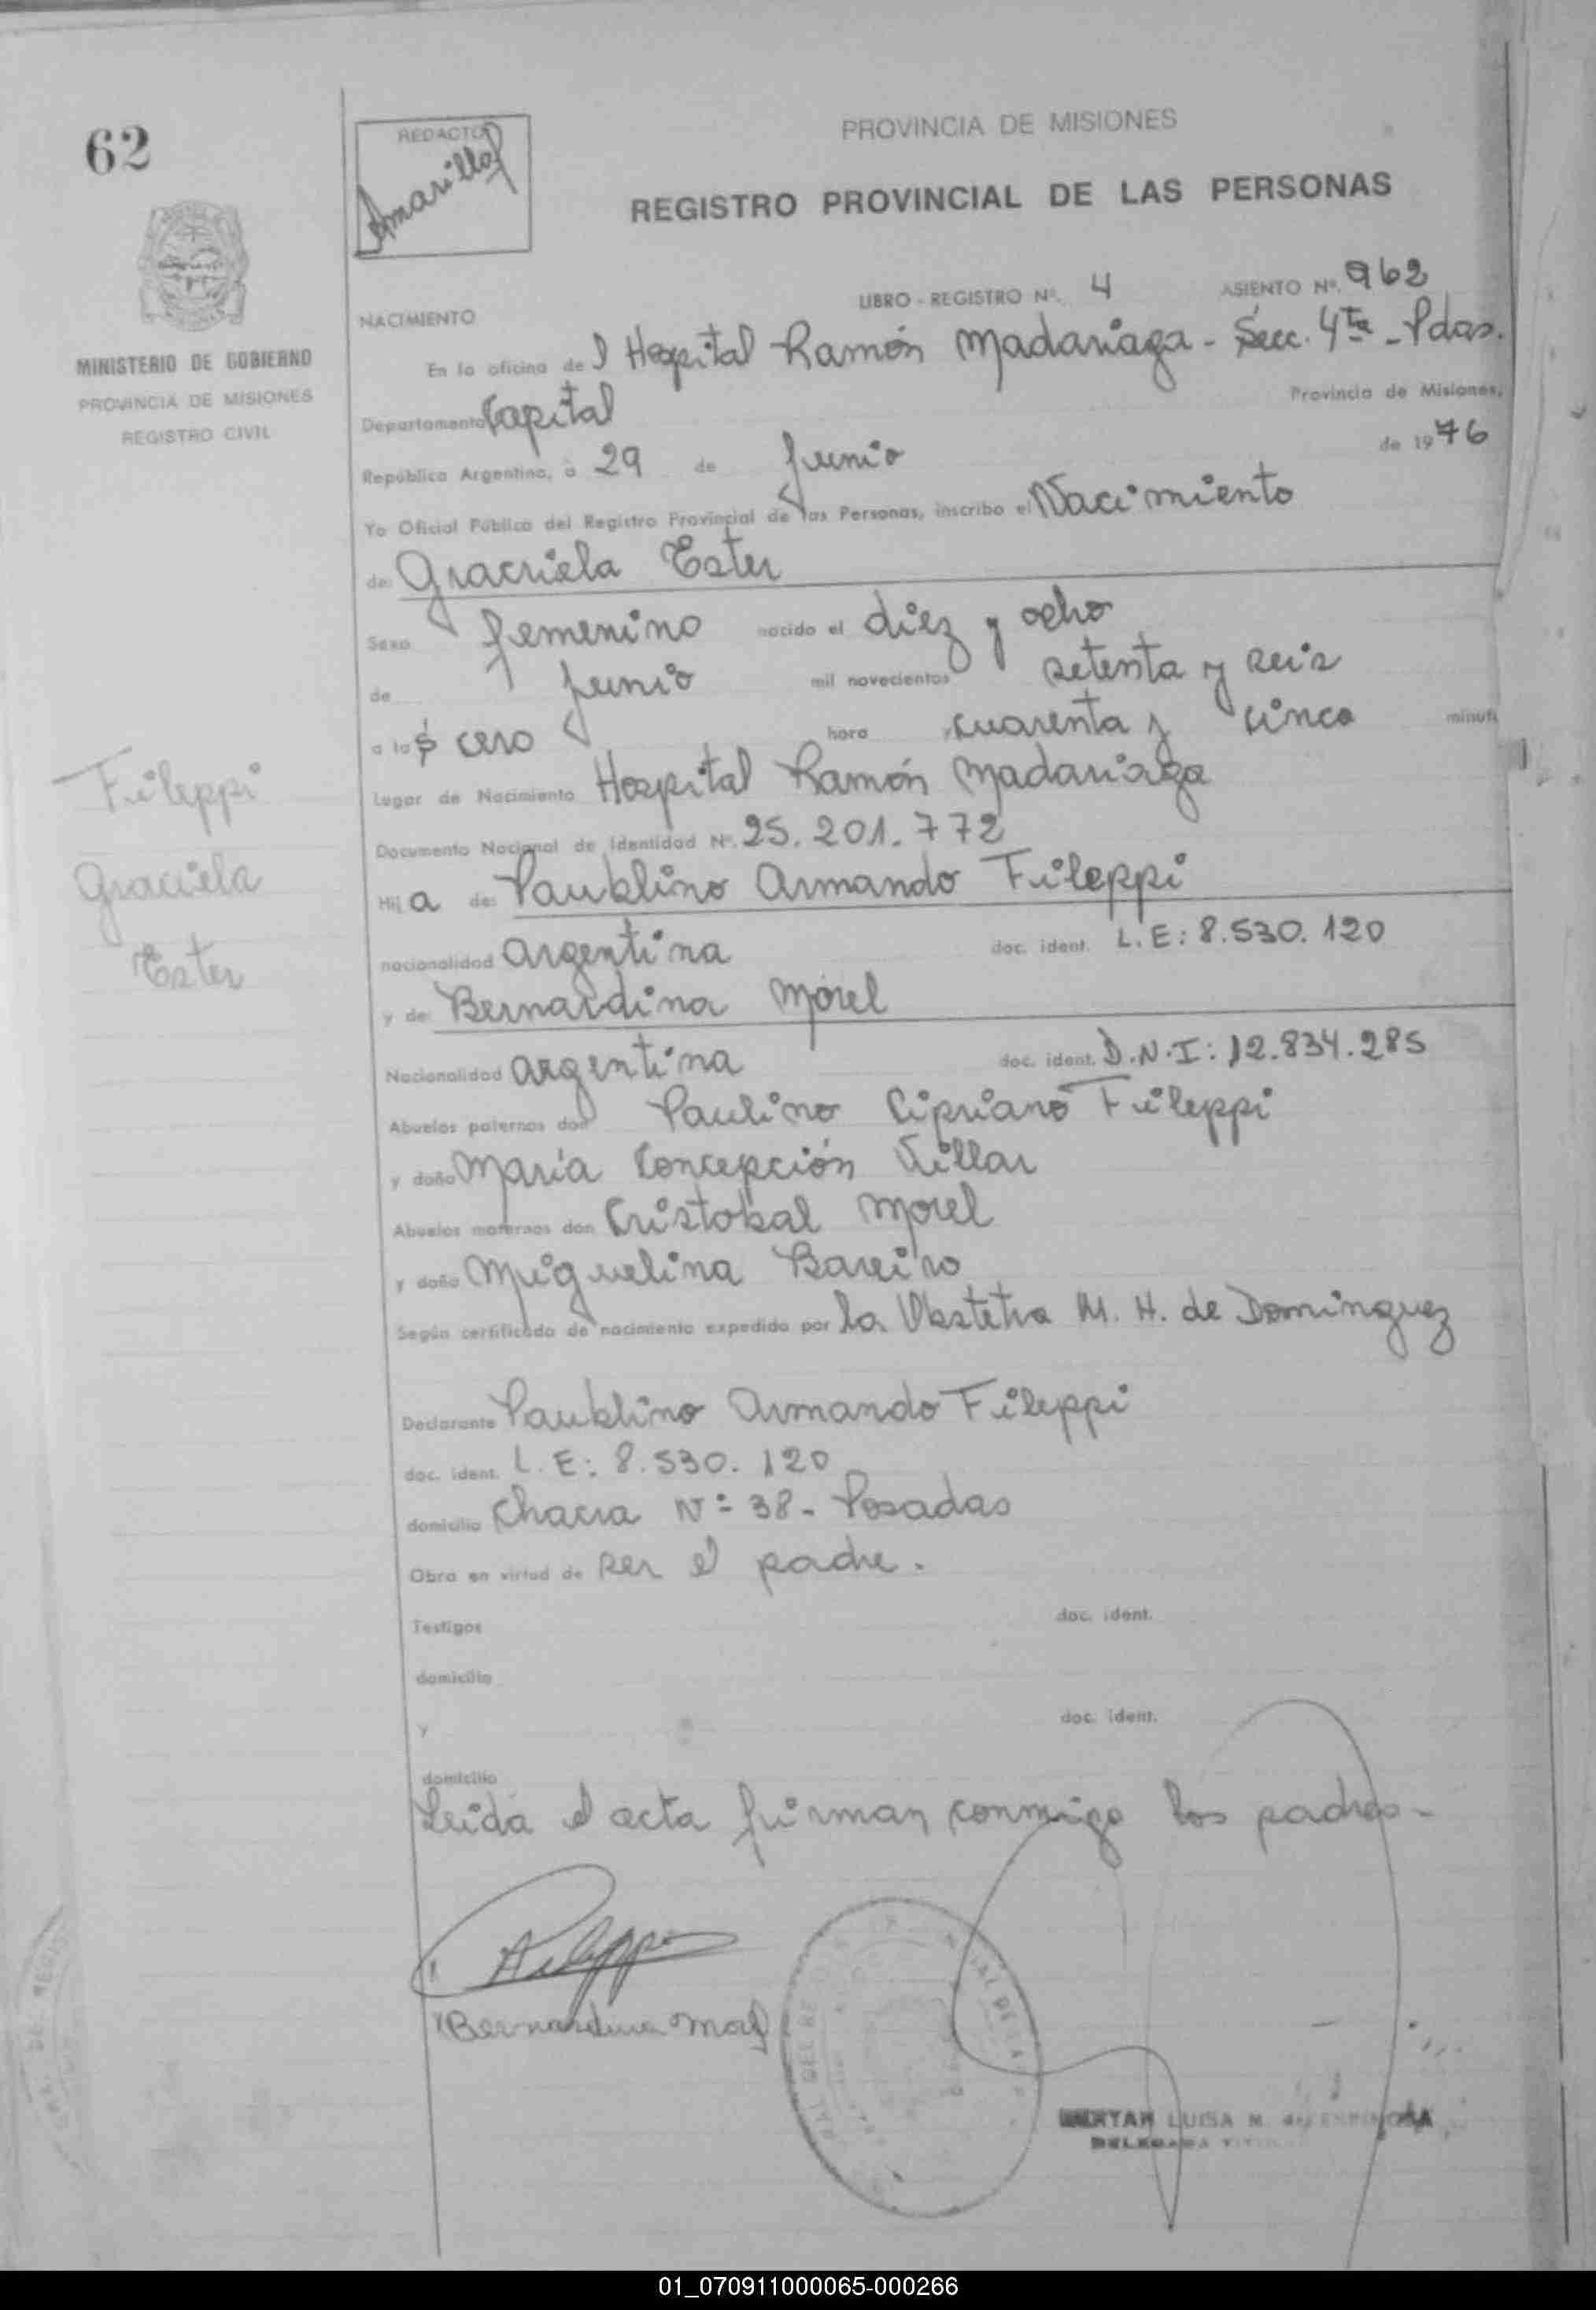 62
REDACTOR
Amarilla
PROVINCIA DE MISIONES
REGISTRO PROVINCIAL DE LAS PERSONAS
MINISTERIO DE GOBIERNO
PROVINCIA DE MISIONES
REGISTRO CIVIL
LIBRO - REGISTRO Nº. 4 ASIENTO Nº. 962
NACIMIENTO
En la oficina del Hospital Ramón Madariaga - Secc. 4ta - Pdas.
Departamento Capital Provincia de Misiones,
República Argentina, a 29 de Junio de 1976
Yo Oficial Público del Registro Provincial de las Personas, inscribo el Nacimiento
de: Gracriela Ester
Sexo femenino nacido el diez y ocho
de Junio mil novecientos setenta y seis
a las cero hora cuarenta y cinco minut
Lugar de Nacimiento Hospital Ramón Madariaga
Documento Nacional de Identidad Nº. 25.201.772
Fileppi
Graciela
Ester
Hija de: Paublino Armando Fileppi
nacionalidad argentina doc. ident. L.E: 8.530.120
y de: Bernardina Morel
Nacionalidad argentina doc. ident. D.N.I: 12.834.285
Abuelos paternos don Paulino Cipriano Fileppi
y doña María Concepción Villar
Abuelos maternos don Cristobal Morel
y doña Miguelina Bareiro
Según certificado de nacimiento expedido por la Obstetra M. H. de Dominguez
Declarante Paublino Armando Fileppi
doc. ident. L.E: 8.530.120
domicilio Chacra Nº 38 - Posadas
Obra en virtud de ser el padre.
Testigos doc. ident.
domicilio
y doc. ident.
domicilio
Leida el acta firman conmigo los padres -
Fileppi
Bernardina Morel
LUISA M. de ESPINOSA
DELEGADA
01_070911000065-000266